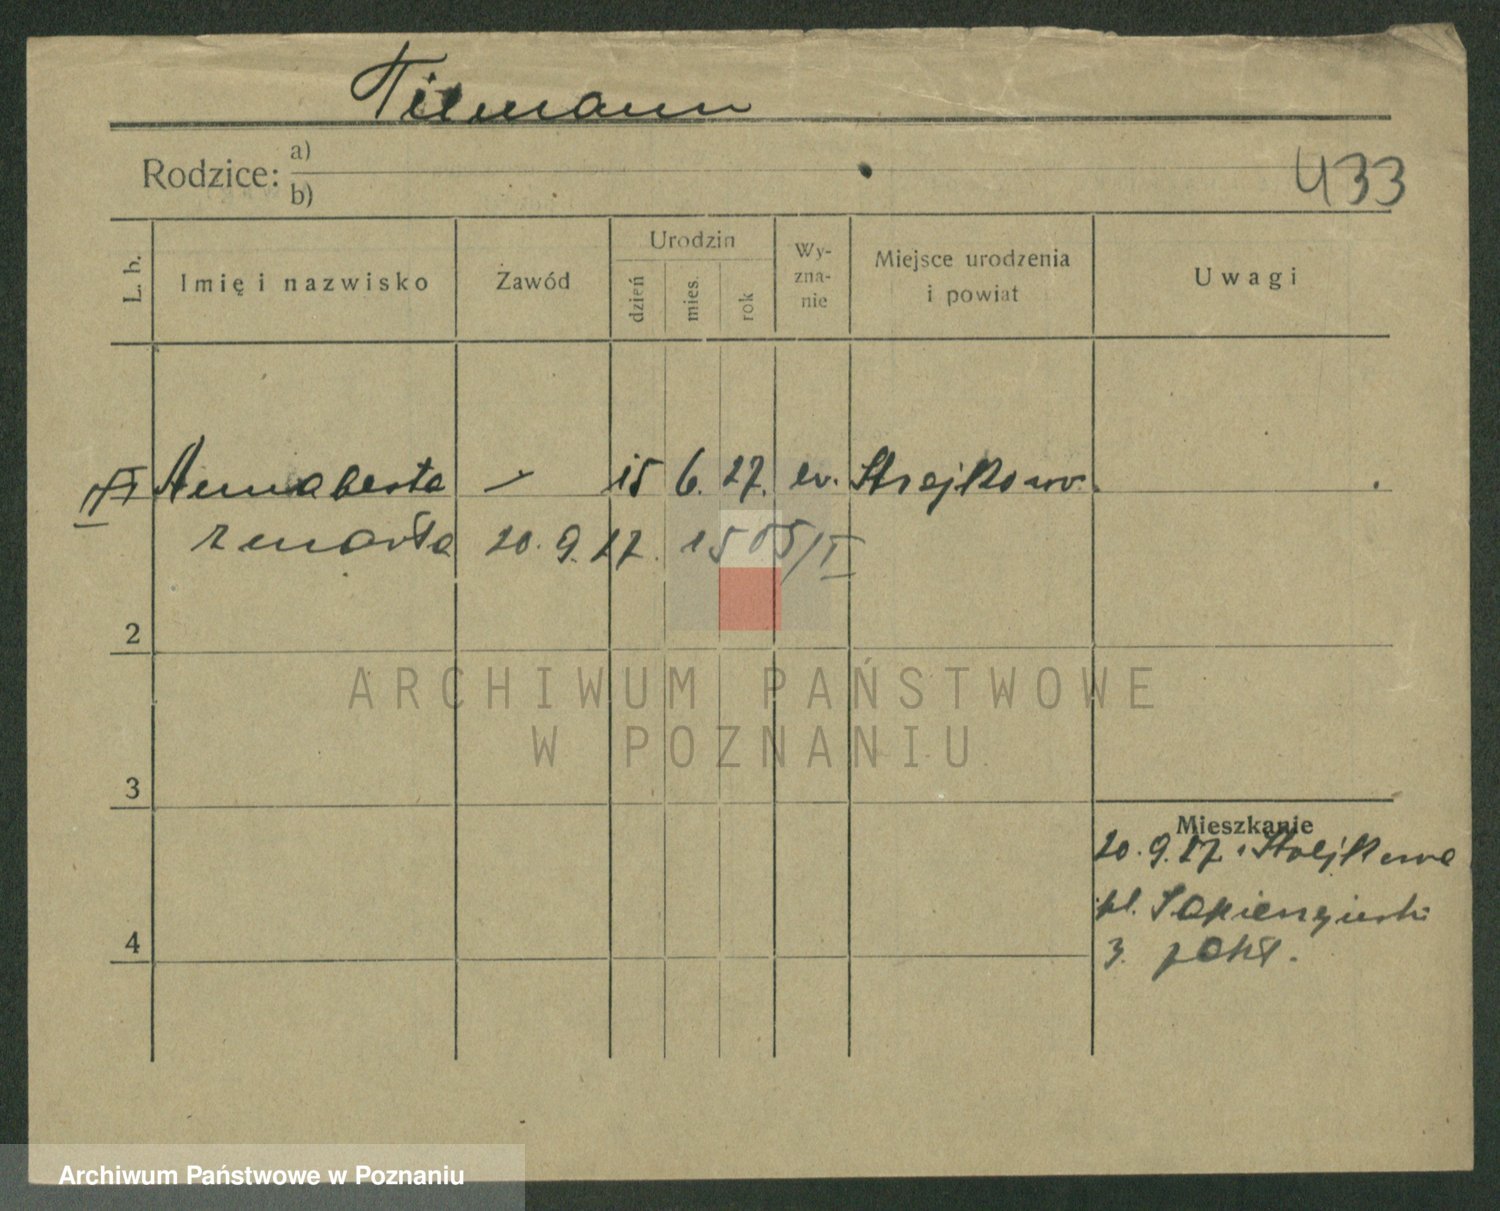 Tilmann
Rodzice: a)
b)
433
L. b.
Imię i nazwisko
Zawód
Urodzin
dzień
mies.
rok
Wy-
zna-
nie
Miejsce urodzenia
i powiat
Uwagi
Annaberta — 15 6. 27. ew. Strejkowo.
zmarła 20. 9. 27. 1505/II
2
3
4
Mieszkanie
20. 9. 27.
pl. Sapieżyński
3.
ARCHIWUM PAŃSTWOWE
W POZNANIU
Archiwum Państwowe w Poznaniu